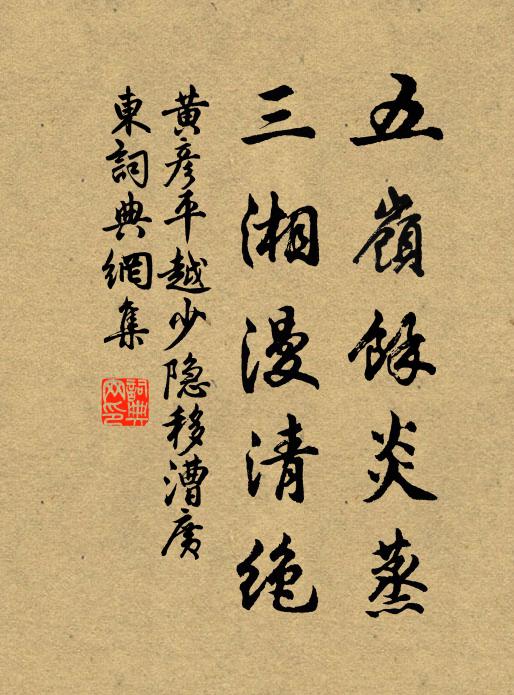 五嶺餘炎蒸
三湘漫清絶
黄彦平越少隐移漕廣
東詞典網集
詞典網印